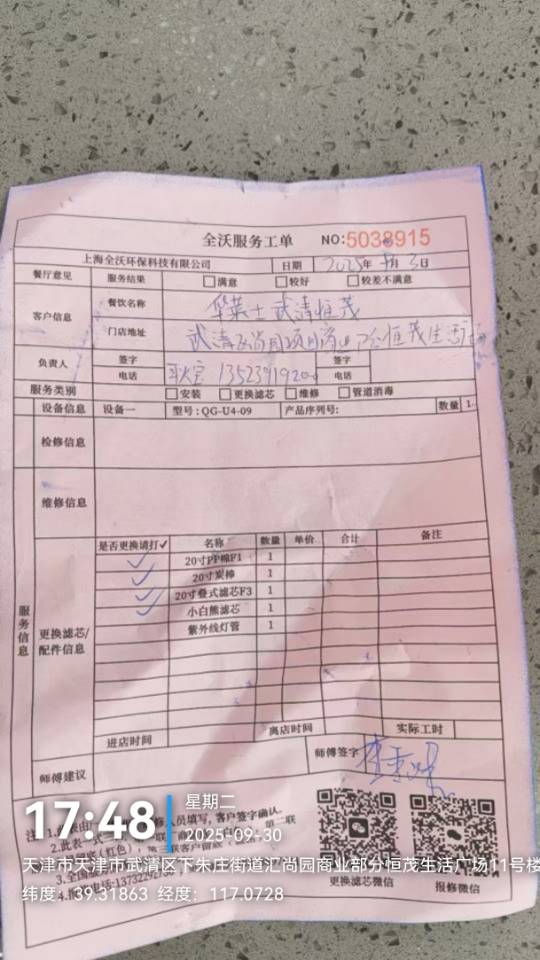 全沃服务工单 NO:5038915
上海全沃环保科技有限公司 日期 2025年 月 3日
餐厅意见 服务结果 满意 较好 较差不满意
客户信息 餐饮名称 华莱士 武清恒茂
门店地址 武清区尚园项目商业 恒茂生活广场
负责人 签字 签字
电话 1352391920 电话
服务类别 安装 更换滤芯 维修 管道消毒
设备信息 设备一 型号:QG-U4-09 产品序列号: 数量 1
检修信息
维修信息
服务信息
更换滤芯/配件信息
是否更换请打✓ 名称 数量 单价 合计 备注
✓ 20寸PP棉F1 1
✓ 20寸炭棒 1
✓ 20寸叠式滤芯F3 1
小白熊滤芯 1
紫外线灯管 1
进店时间 离店时间 实际工时
师傅建议 师傅签字
注:1. 人员填写,客户签字确认.
2.此表一式 第二联
(红色),第三联客
3.全国服
4.报 13732292
更换滤芯微信 报修微信
17:48 星期二
2025-09-30
天津市天津市武清区下朱庄街道汇尚园商业部分恒茂生活广场11号楼
纬度:39.31863 经度:117.0728